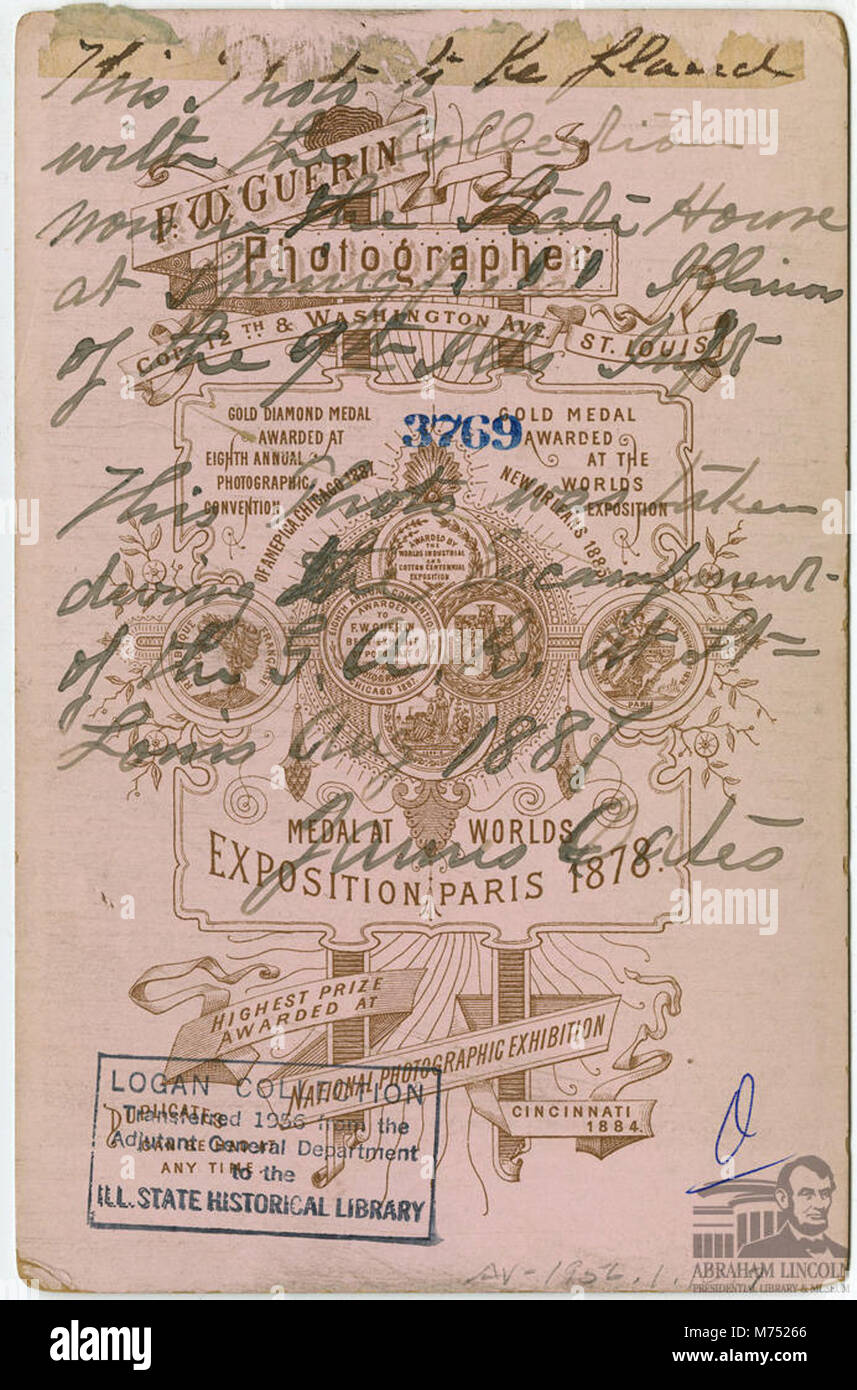 This Photo to be placed
with the Collection
now in the State House
at Springfield Illinois
of the 9th Ills Inft
This Photo was taken
during the Encampment
of the G. A. R. at St
Louis Aug 1887
James Oates
F. W. GUERIN
Photographer
COR. 12TH & WASHINGTON AVE. ST. LOUIS
GOLD DIAMOND MEDAL
AWARDED AT
EIGHTH ANNUAL
PHOTOGRAPHIC
CONVENTION
OF AMERICA, CHICAGO 1887.
3769
GOLD MEDAL
AWARDED
AT THE
WORLDS
EXPOSITION
NEW ORLEANS 1885
AWARDED BY
THE
WORLDS INDUSTRIAL
AND
COTTON CENTENNIAL
EXPOSITION
EIGHTH ANNUAL CONVENTION
AWARDED
TO
F. W. GUERIN
CHICAGO 1887.
REPUBLIQUE FRANÇAISE
PARIS
MEDAL AT WORLDS
EXPOSITION PARIS 1878.
HIGHEST PRIZE
AWARDED AT
NATIONAL PHOTOGRAPHIC EXHIBITION
CINCINNATI
1884.
DUPLICATES
CAN BE HAD AT
ANY TIME.
LOGAN COLLECTION
Transferred 1956 from the
Adjutant General Department
to the
ILL. STATE HISTORICAL LIBRARY
AV-1956.1.
ABRAHAM LINCOLN
PRESIDENTIAL LIBRARY & MUSEUM
a alamy stock photo
alamy
a
a
a
a
alamy
Image ID: M75266
www.alamy.com